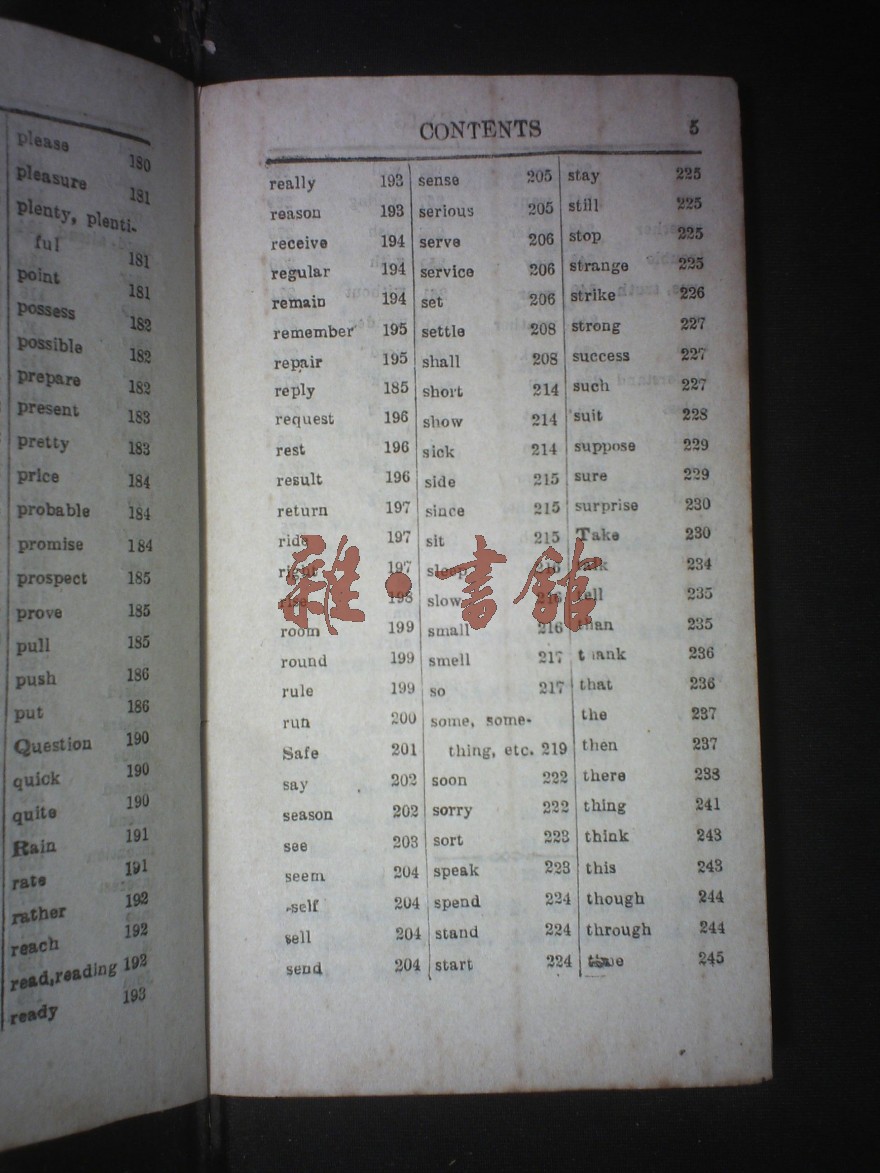 please 180
pleasure 181
plenty, plenti-
ful 181
point 181
possess 182
possible 182
prepare 182
present 183
pretty 183
price 184
probable 184
promise 184
prospect 185
prove 185
pull 185
push 186
put 186
Question 190
quick 190
quite 190
Rain 191
rate 191
rather 192
reach 192
read,reading 192
ready 193
CONTENTS 5
really 193
reason 193
receive 194
regular 194
remain 194
remember 195
repair 195
reply 185
request 196
rest 196
result 196
return 197
ride 197
right 197
rise 198
room 199
round 199
rule 199
run 200
Safe 201
say 202
season 202
see 203
seem 204
-self 204
sell 204
send 204
sense 205
serious 205
serve 206
service 206
set 206
settle 208
shall 208
short 214
show 214
sick 214
side 215
since 215
sit 215
sleep 216
slow 216
small 216
smell 217
so 217
some, some-
thing, etc. 219
soon 222
sorry 222
sort 223
speak 223
spend 224
stand 224
start 224
stay 225
still 225
stop 225
strange 225
strike 226
strong 227
success 227
such 227
suit 228
suppose 229
sure 229
surprise 230
Take 230
talk 234
tell 235
than 235
thank 236
that 236
the 237
then 237
there 238
thing 241
think 243
this 243
though 244
through 244
time 245
雜·書館